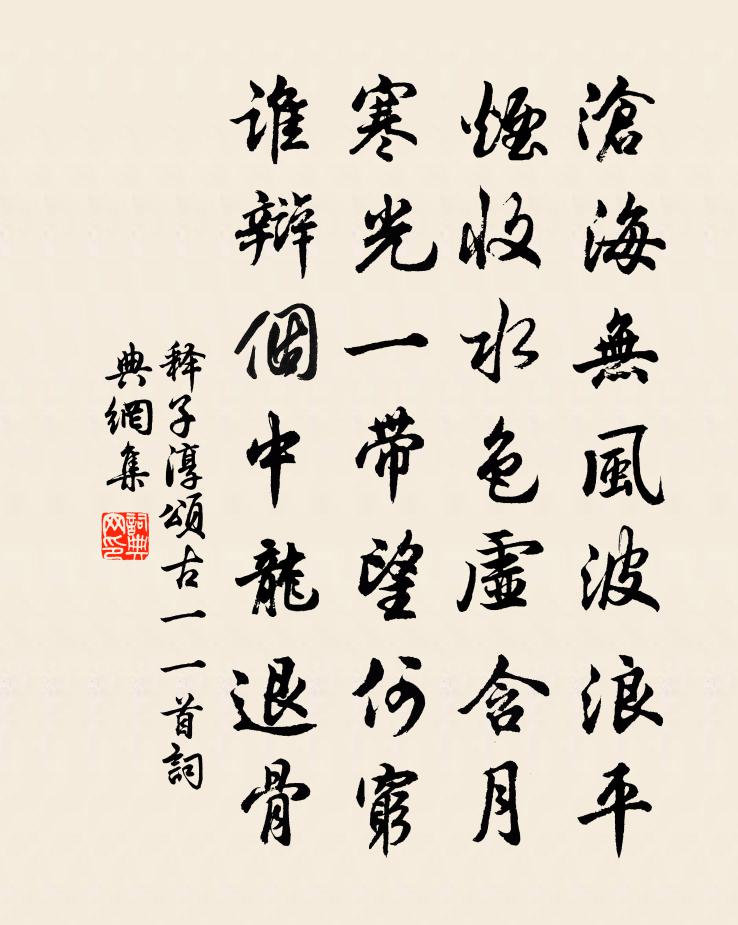 滄海無風波浪平
煙收水色虛含月
寒光一带望何窮
誰辯個中龍退骨
释子淳頌古一一首詞
典網集
詞典
网印